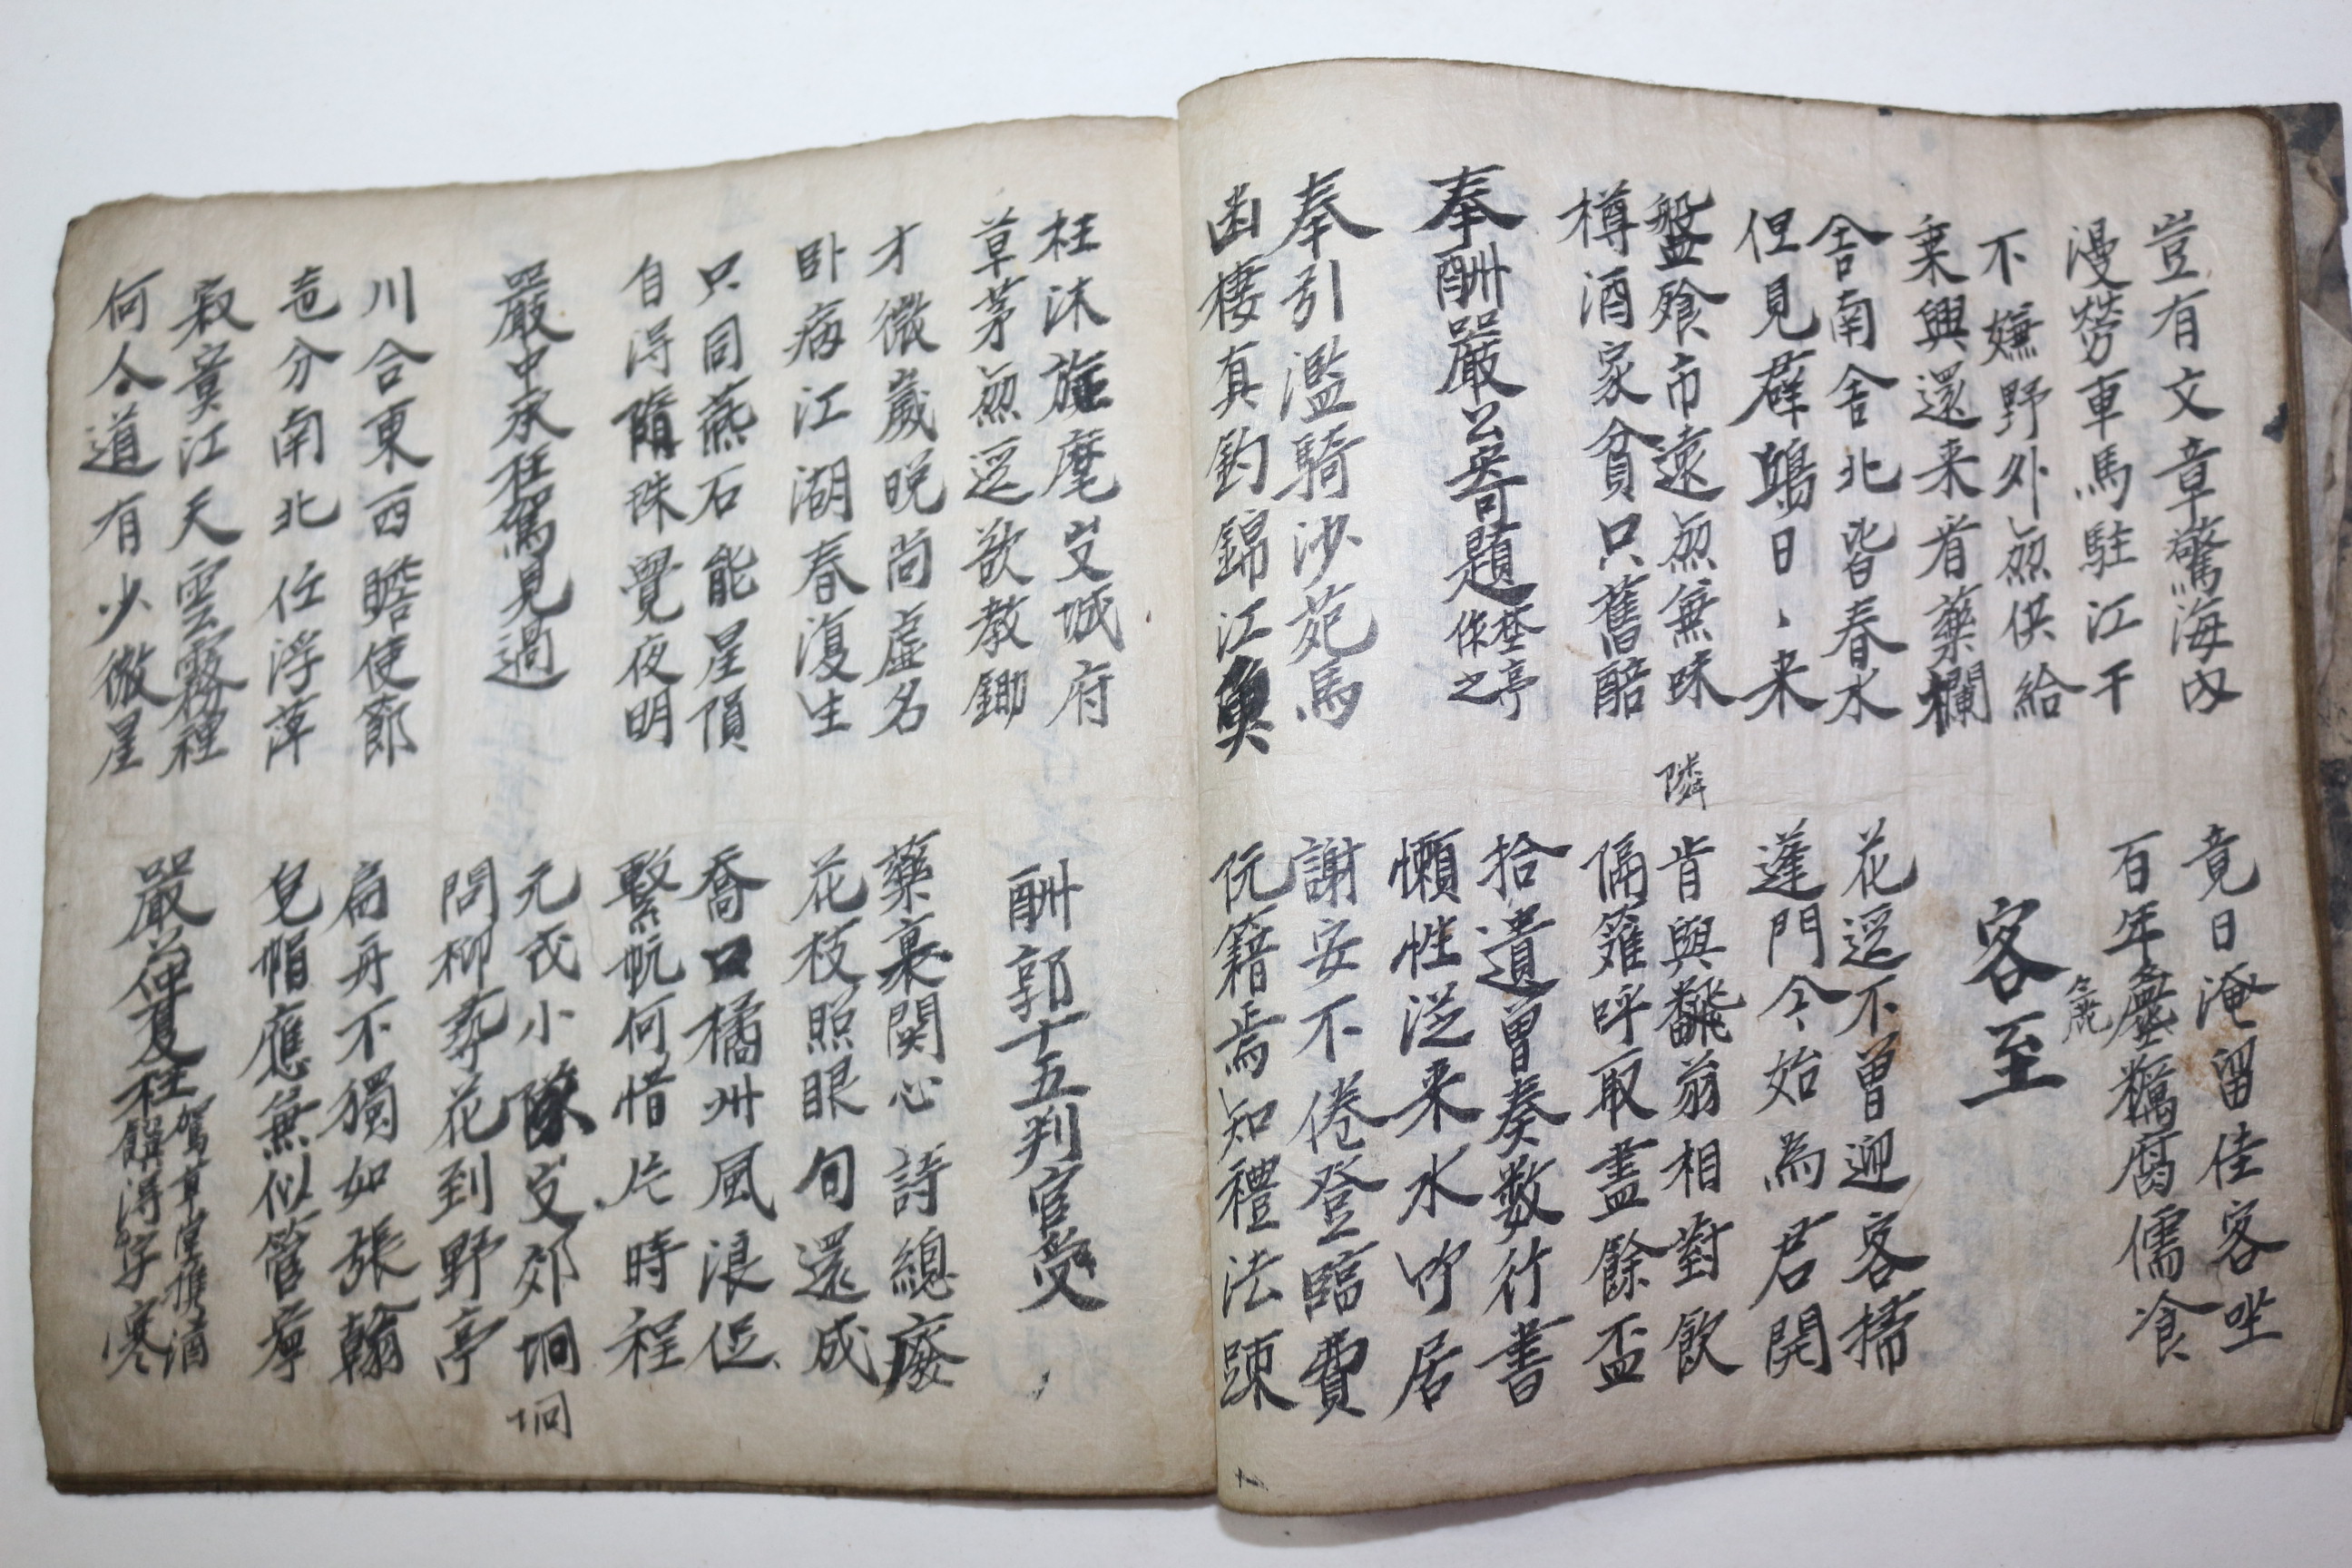 豈有文章驚海內
漫勞車馬駐江干
竟日淹留佳客坐
百年麤糲腐儒飡
麤
不嫌野外無供給
乗興還来看藥欄
客至
舍南舍北皆春水
但見群鷗日〻来
花逕不曾迎客掃
蓬門今始為君開
盤飱市遠無無味
樽酒家貧只舊醅
隣
肯與翁相對飲
隔籬呼取盡餘盃
奉酬嚴公寄題埜亭之作
拾遺曾奏數行書
懶性從来水竹居
奉引濫騎沙苑馬
幽棲真釣錦江魚
謝安不倦登臨費
阮籍焉知禮法疎
枉沐旌麾出城府
草茅無逕欲教鋤
酬郭十五判官受
才微歲晚尚虛名
卧病江湖春復生
藥裹関心詩總廢
花枝照眼句還成
只同燕石能星隕
自得隋珠覺夜明
喬口橘州風浪促
繫帆何惜片時程
嚴中丞枉駕見過
元戎小隊出郊坰
坰
問柳尋花到野亭
川合東西瞻使節
地分南北任浮萍
扁舟不獨如張翰
皂帽應無似管寧
寂寞江天雲霧裡
何人道有少微星
嚴公仲夏枉駕草堂携酒饌得字寒